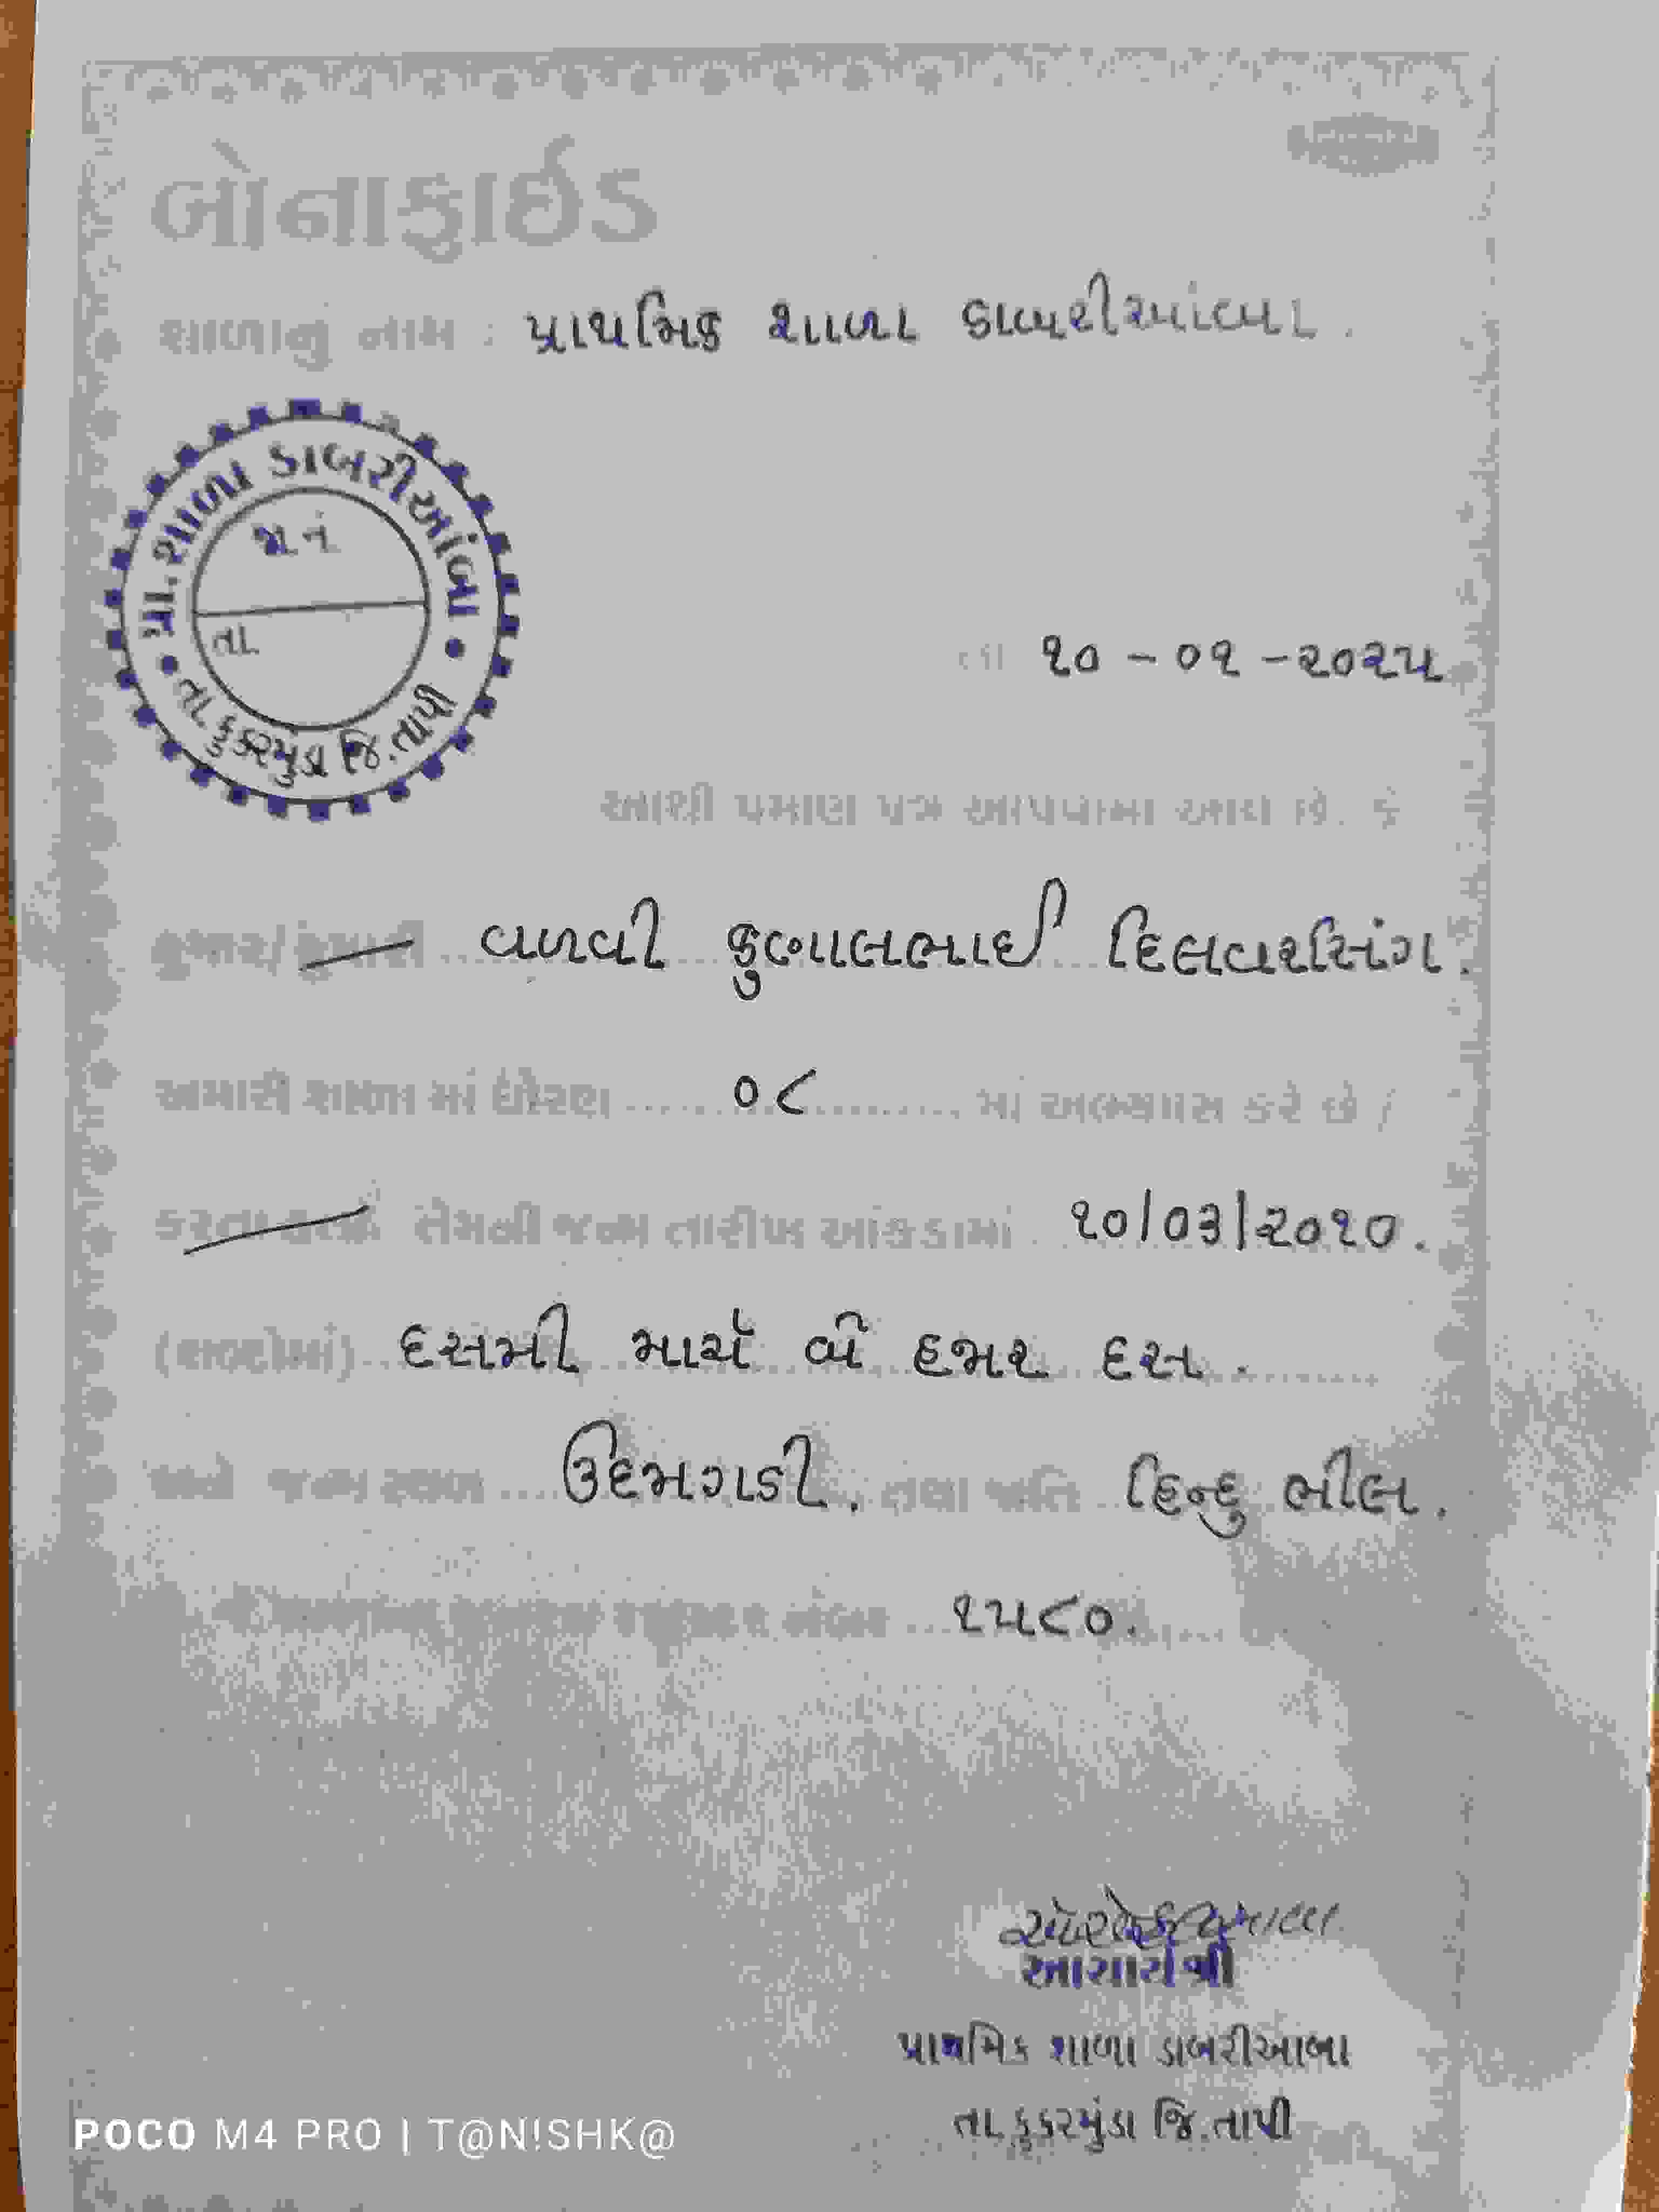 બોનાફાઈડ
શાળાનું નામ : પ્રાથમિક શાળા ડાબરીઆંબા .
પ્રા. શાળા ડાબરીઆંબા
જા.નં
તા.
તા. કુકરમુંડા જિ. તાપી
તા. ૧૦ - ૦૧ - ૨૦૨૫
આથી પ્રમાણ પત્ર આપવામાં આવે છે. કે
વળવી કુણાલભાઈ દિલવરસિંગ.
અમારી શાળા માં ધોરણ ............ ૦૮ ............ માં અભ્યાસ કરે છે /
કરતા હતા તેમની જન્મ તારીખ આંકડામાં ૧૦/૦૩/૨૦૧૦.
(શબ્દોમાં) દસમી માર્ચ બે હજાર દસ.
જન્મ સ્થળ ... ઉદમગડી. તથા જાતિ ... હિન્દુ ભીલ.
૧૫૮૦.
આચાર્યશ્રી
પ્રાથમિક શાળા ડાબરીઆંબા
તા. કુકરમુંડા જિ. તાપી
POCO M4 PRO | T@N!SHK@